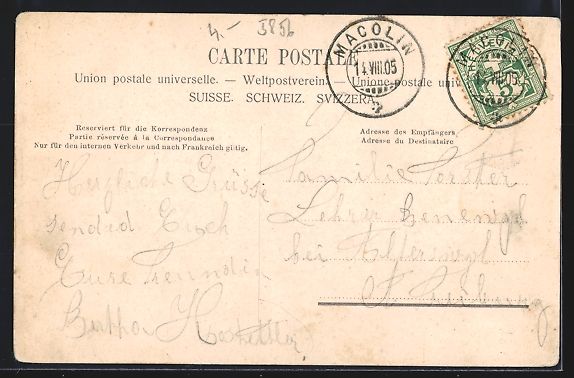 4.– 3856
CARTE POSTALE
Union postale universelle. — Weltpostverein. — Unione postale univ
SUISSE. SCHWEIZ. SVIZZERA.
MACOLIN
14.VIII.05
MACOLIN
14.VIII.05
5
Reserviert für die Korrespondenz
Partie réservée à la Correspondance
Nur für den internen Verkehr und nach Frankreich gültig.
Adresse des Empfängers
Adresse du Destinataire
Herzliche Grüsse
sendid Euch
Eure Freundin
Bertha Hostettler
Familie Forster
Lehrer
bei
Freiburg